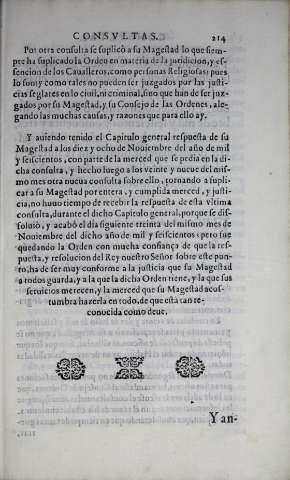 CONSVLTAS. 214
Por otra consulta se suplicò a su Magestad lo que siem-
pre ha suplicado la Orden en materia de la juridicion, y es-
sencion de los Caualleros, como personas Religiosas: pues
lo son; y como tales no pueden ser juzgados por las justi-
cias seglares en lo ciuil, ni criminal, sino que han de ser juz-
gados por su Magestad, y su Consejo de las Ordenes, ale-
gando las muchas causas, y razones que para ello ay.
Y auiendo tenido el Capitulo general respuesta de su
Magestad a los diez y ocho de Nouiembre del año de mil
y seiscientos, con parte de la merced que se pedia en la di-
cha consulta, y hecho luego a los veinte y nueue del mis-
mo mes otra nueua consulta sobre ello, tornando a supli-
car a su Magestad por entera, y cumplida merced, y justi-
cia, no huuo tiempo de recebir la respuesta de esta vltima
consulta, durante el dicho Capitulo general, porque se dis-
soluio, y acabó el dia siguiente treinta del mismo mes de
Nouiembre del dicho año de mil y seiscientos: pero fue
quedando la Orden con mucha confiança de que la res-
puesta, y resolucion del Rey nuestro Señor sobre este pun-
to, ha de ser muy conforme a la justicia que su Magestad
a todos guarda, y a la que la dicha Orden tiene, y la que sus
seruicios merecen, y la merced que su Magestad acos-
tumbra hazerla en todo, de que està tan re-
conocida como deue.
Y an-